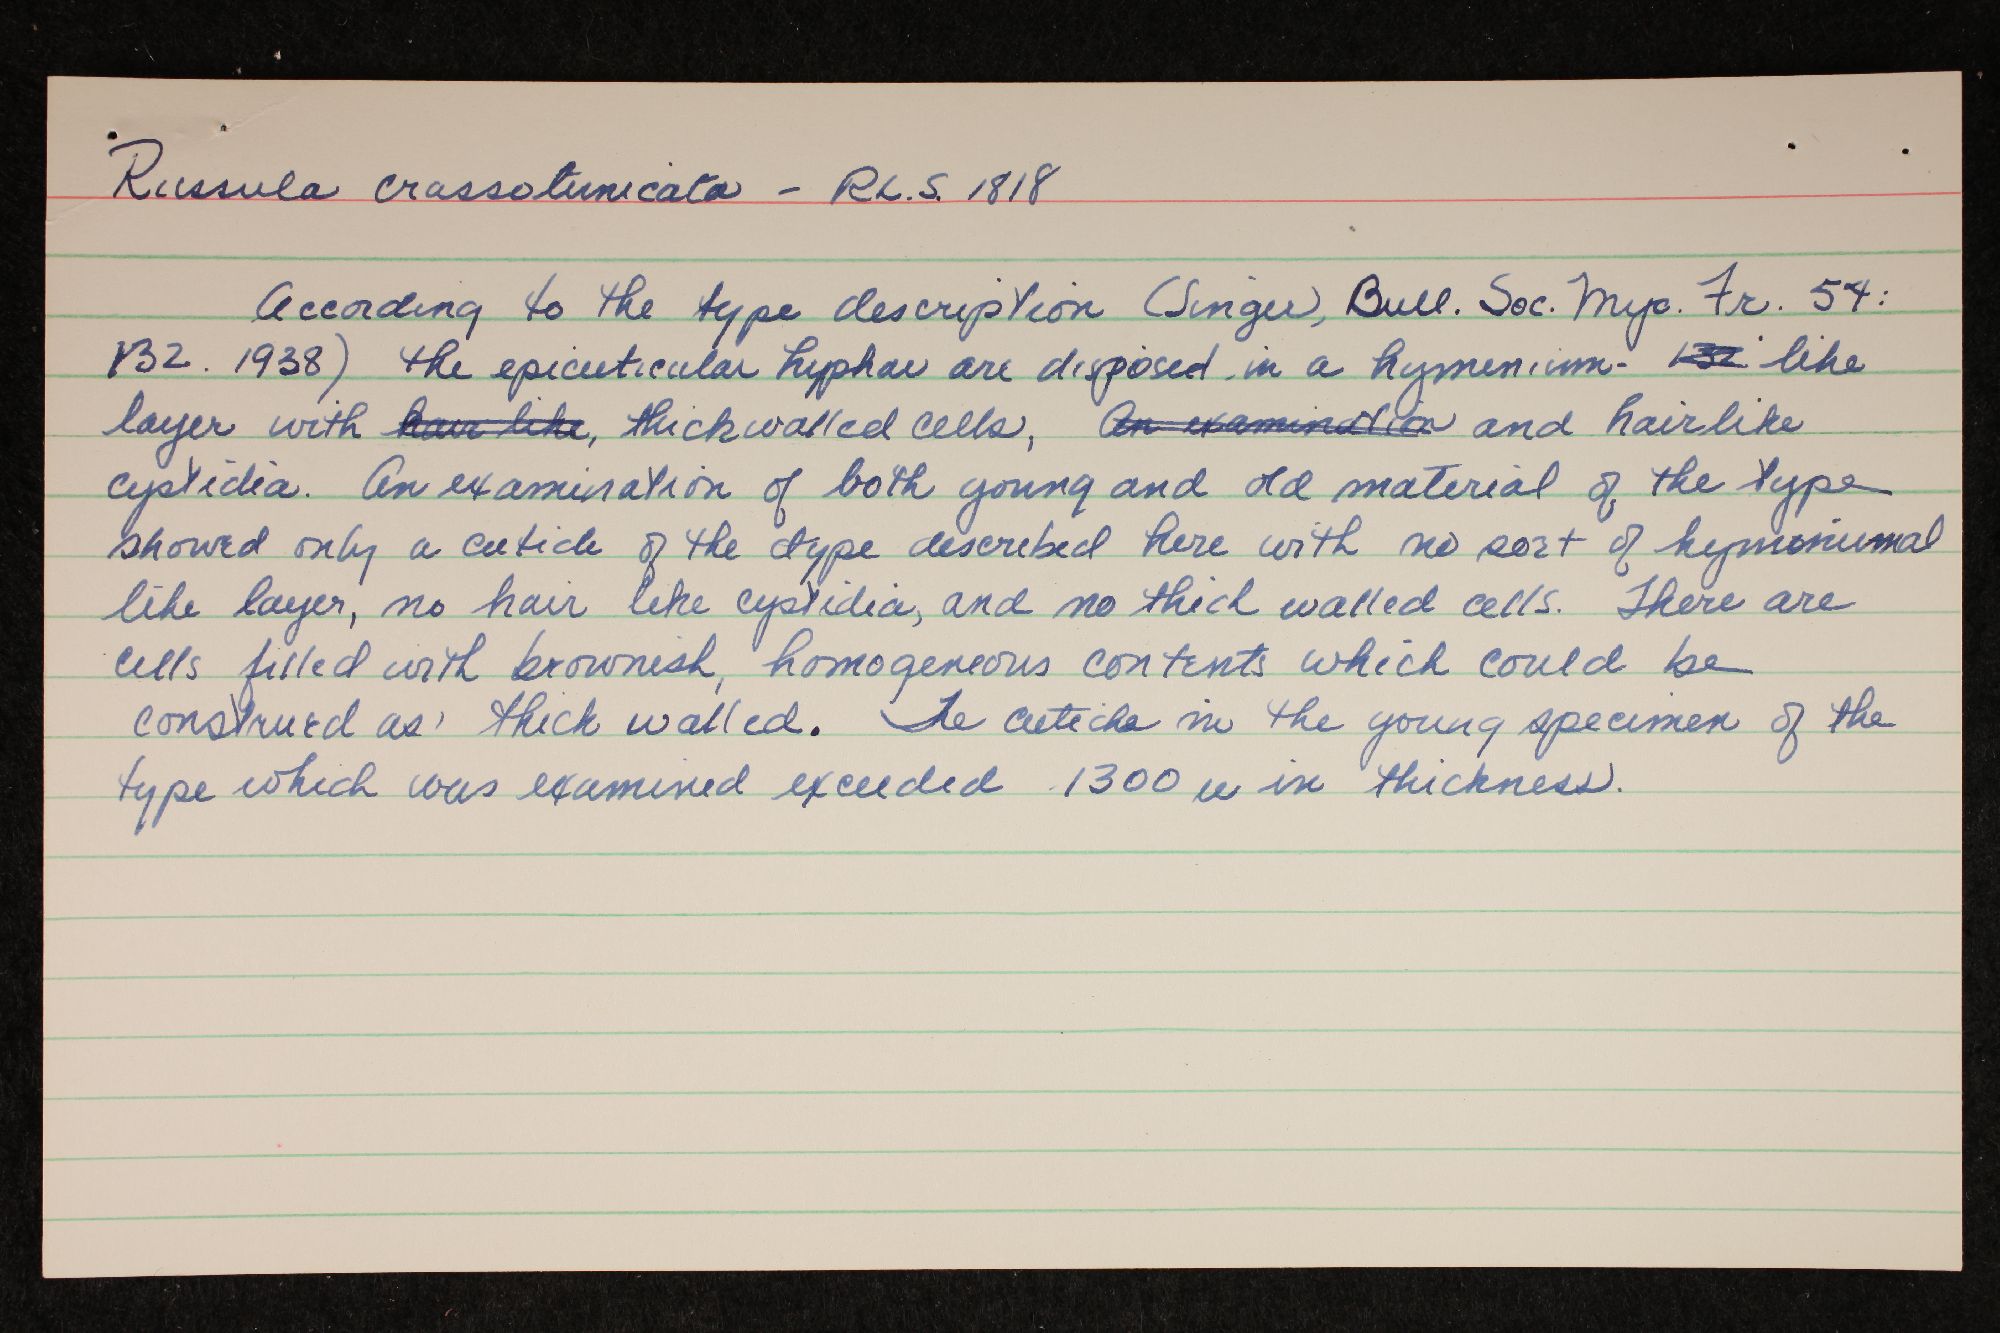 Russula crassotunicata - R.L.S. 1818
According to the type description (Singer, Bull. Soc. Myc. Fr. 54:
132. 1938) the epicuticular hyphae are disposed in a hymenium- ~~132~~ like
layer with ~~hair like~~, thickwalled cells, ~~An examination~~ and hairlike
cystidia. An examination of both young and old material of the type
showed only a cuticle of the type described here with no sort of hymenumal
like layer, no hair like cystidia, and no thick walled cells. There are
cells filled with brownish, homogeneous contents which could be
construed as thick walled. The cuticle in the young specimen of the
type which was examined exceeded 1300 u in thickness.